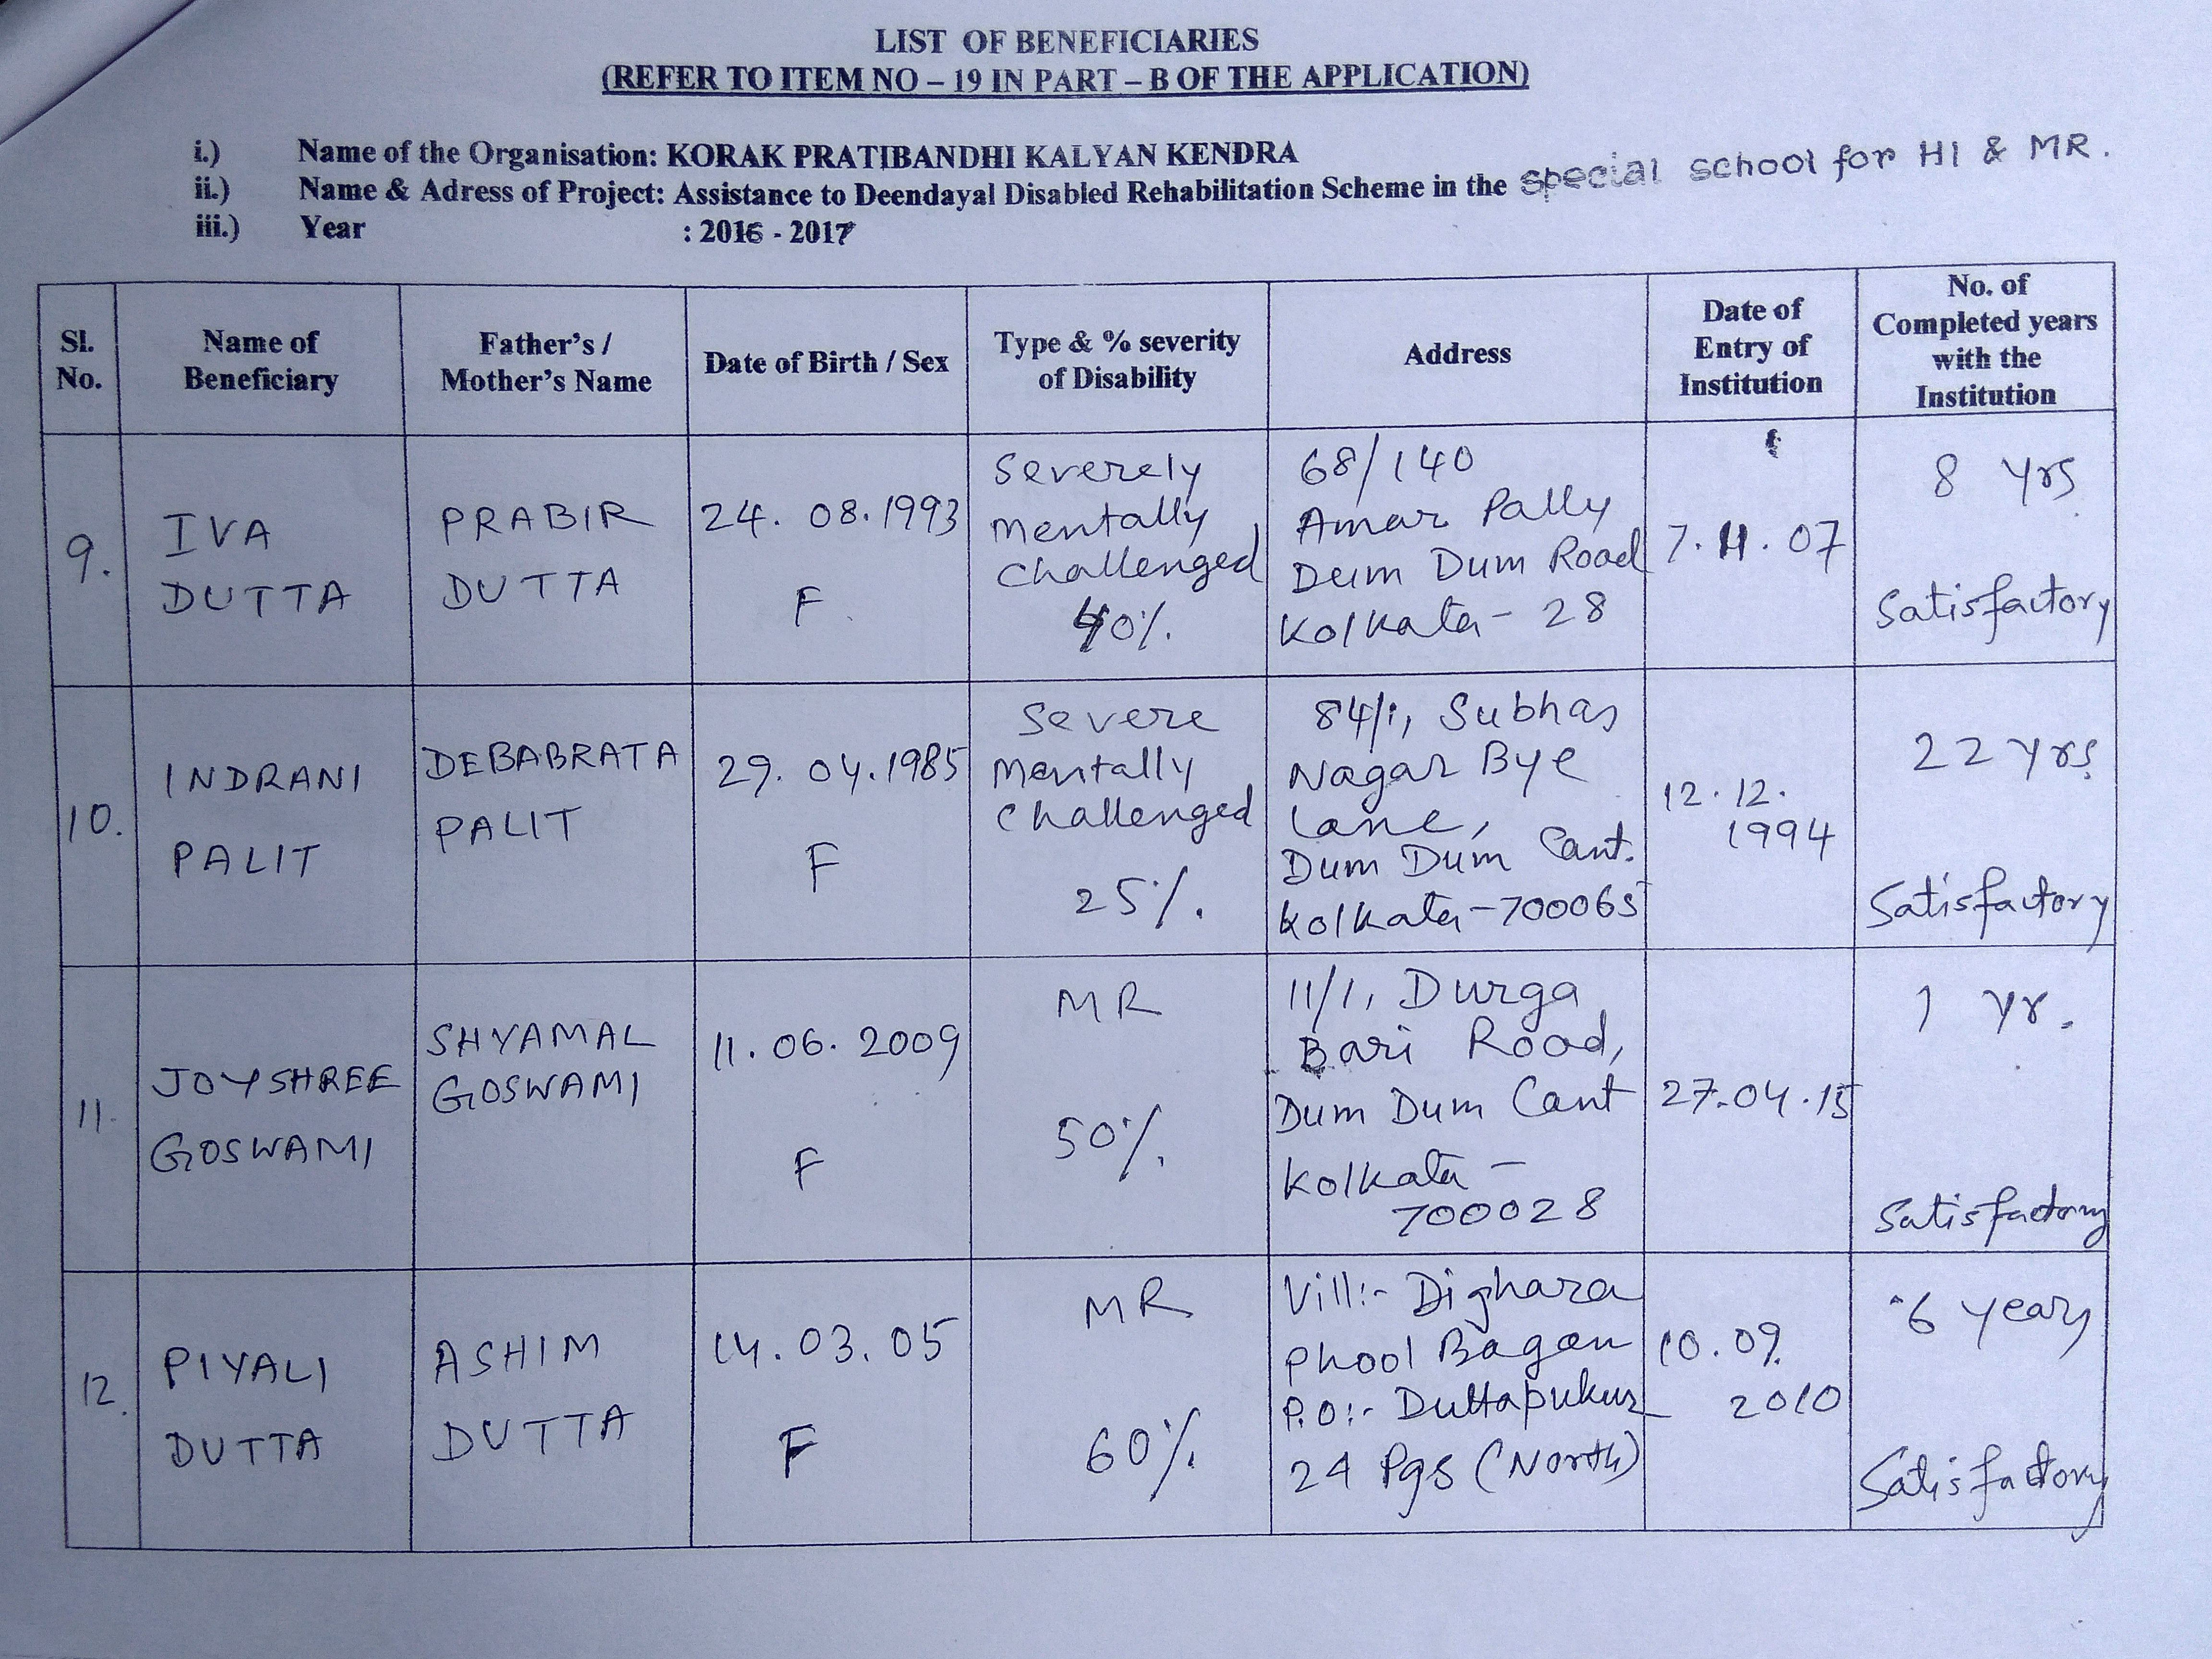 LIST OF BENEFICIARIES
(REFER TO ITEM NO – 19 IN PART – B OF THE APPLICATION)
i.) Name of the Organisation: KORAK PRATIBANDHI KALYAN KENDRA
ii.) Name & Adress of Project: Assistance to Deendayal Disabled Rehabilitation Scheme in the special school for HI & MR.
iii.) Year : 2016 - 2017
Sl.
No.
Name of
Beneficiary
Father's /
Mother's Name
Date of Birth / Sex
Type & % severity
of Disability
Address
Date of
Entry of
Institution
No. of
Completed years
with the
Institution
9.
IVA
DUTTA
PRABIR
DUTTA
24. 08. 1993
F
Severely
mentally
challenged
40%.
68/140
Amar Pally
Dum Dum Road
Kolkata - 28
7. 11. 07
8 yrs
Satisfactory
10.
INDRANI
PALIT
DEBABRATA
PALIT
29. 04. 1985
F
Severe
Mentally
Challenged
25%.
84/1, Subhas
Nagar Bye
Lane,
Dum Dum Cant.
Kolkata - 700065
12. 12.
1994
22 yrs
Satisfactory
11.
JOYSHREE
GOSWAMI
SHYAMAL
GOSWAMI
11. 06. 2009
F
MR
50%.
11/1, Durga
Bari Road,
Dum Dum Cant
Kolkata -
700028
27-04.15
1 yr.
Satisfactory
12.
PIYALI
DUTTA
ASHIM
DUTTA
14. 03. 05
F
MR
60%.
Vill:- Dighara
Phool Bagan
P.O:- Duttapukur
24 Pgs (North)
10. 09.
2010
6 years
Satisfactory